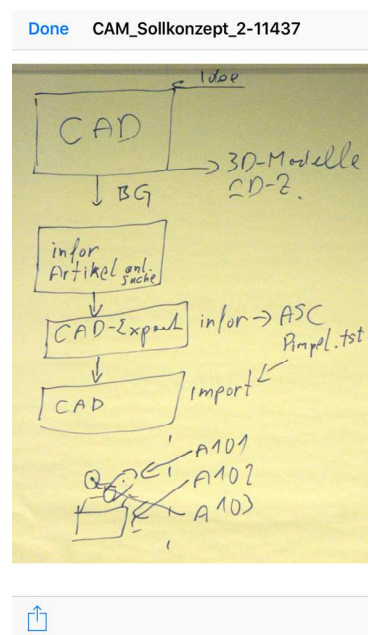 Done CAM_Sollkonzept_2-11437
Idee
CAD
3D-Modelle
BG
infor
Artikel anl.
suche
CAD-Export
infor → ASC
CAD
Import
A101
A102
A103